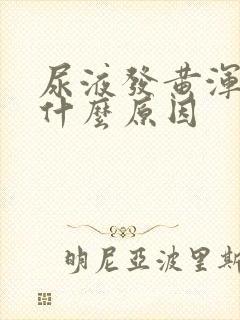 尿液發黃渾
什麼原因
明尼亞波里斯